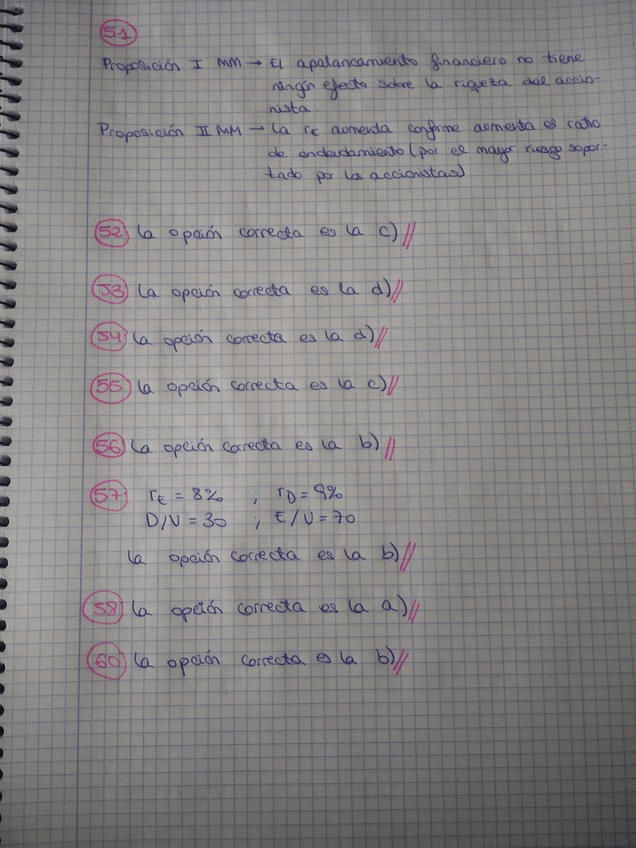 51
Proposición I MM → El apalancamiento financiero no tiene
ningún efecto sobre la riqueza del accio-
nista.
Proposición II MM → La rE aumenta conforme aumenta el ratio
de endeudamiento (por el mayor riesgo sopor-
tado por los accionistas)
52 La opción correcta es la c)//
53 La opción correcta es la d)//
54 La opción correcta es la d)//
55 La opción correcta es la c)//
56 La opción correcta es la b)//
57 rE = 8% ; rD = 9%
D/V = 30 ; E/V = 70
La opción correcta es la b)//
58 La opción correcta es la a)//
60 La opción correcta es la b)//